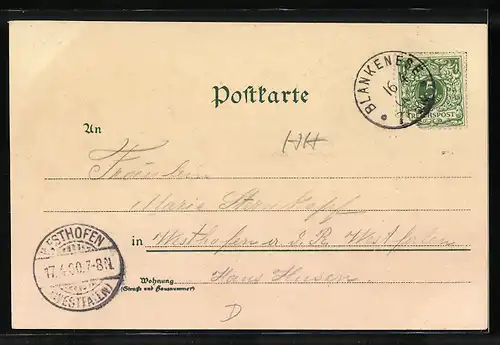 Postkarte
BLANKENESE
16
5
REICHSPOST
An
Fräulein
Maria Sternkopf
in Westhofen a. d. R. Westfalen
Haus Husen.
Wohnung
(Straße und Hausnummer)
WESTHOFEN
17.4.00.7-8N.
(WESTFALEN)
D